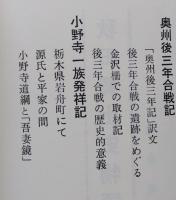 奥州後三年合戦記
「奥州後三年記」訳文
後三年合戦の遺跡をめぐる
金沢柵での取材記
後三年合戦の歴史的意義
小野寺一族発祥記
栃木県岩舟町にて
源氏と平家の間
小野寺道綱と「吾妻鏡」